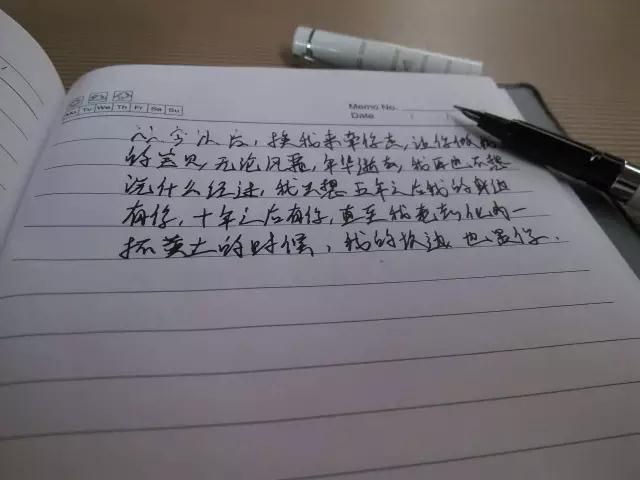 Mo Tu We Th Fr Sa Su
Memo No.
Date / /
以后,换我来牵你走,让你做我
的宝贝,无论风霜,年华逝去,我再也不想
说什么经过,我只想五年之后我的身边
有你,十年之后有你,直至我老到化为一
抔黄土的时候,我的坟边也是你.